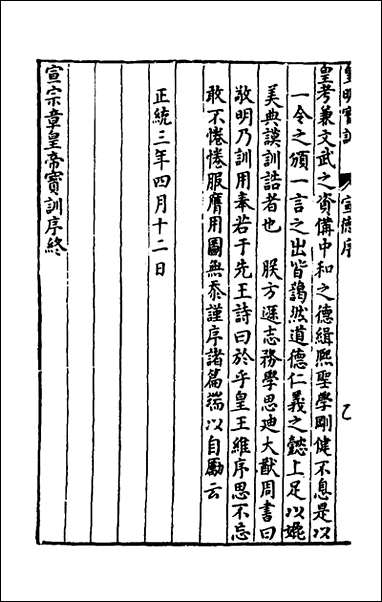 皇明寶訓 宣德序
皇考兼文武之資備中和之德緝熙聖學剛健不息是以
一令之頒一言之出皆藹然道德仁義之懿上足以媲
美典謨訓誥者也 朕方遜志務學思迪大猷周書曰
敬明乃訓用奉若于先王詩曰於乎皇王維序思不忘
敢不惓惓服膺用圖無忝謹序諸篇端以自勵云
正統三年四月十二日
宣宗章皇帝寶訓序終